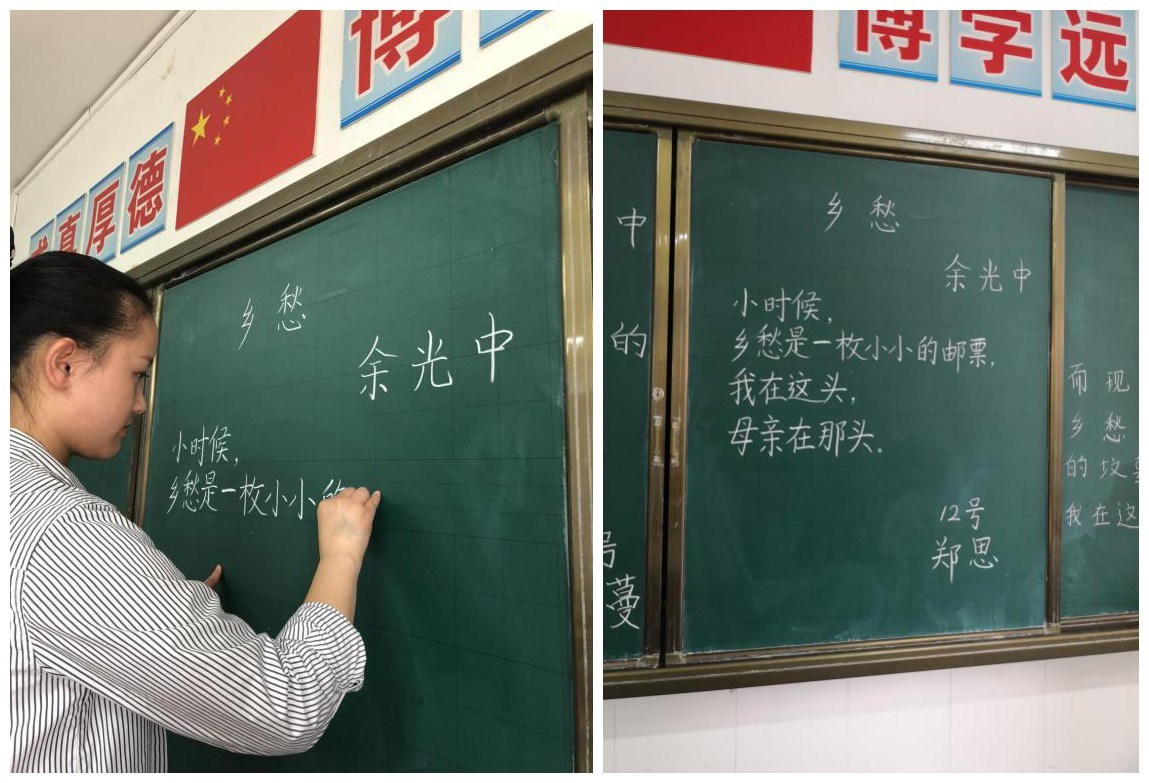 真厚德
博
乡愁
余光中
小时候,
乡愁是一枚小小的
博学远
中
的
号
蔓
乡愁
余光中
小时候,
乡愁是一枚小小的邮票,
我在这头,
母亲在那头.
12号
郑思
而现
乡愁
的坟墓
我在这